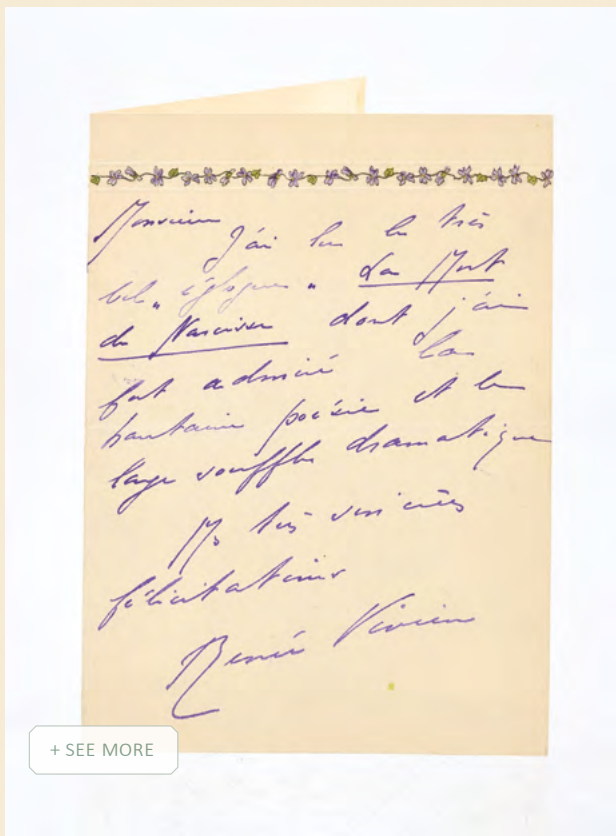 Monsieur
J'ai lu le très
bel „ églogue " La Mort
de Narcisse dont j'ai
fort admiré la
hautaine poésie et le
large souffle dramatique
Mes très sincères
félicitations
Renée Vivien
+ SEE MORE